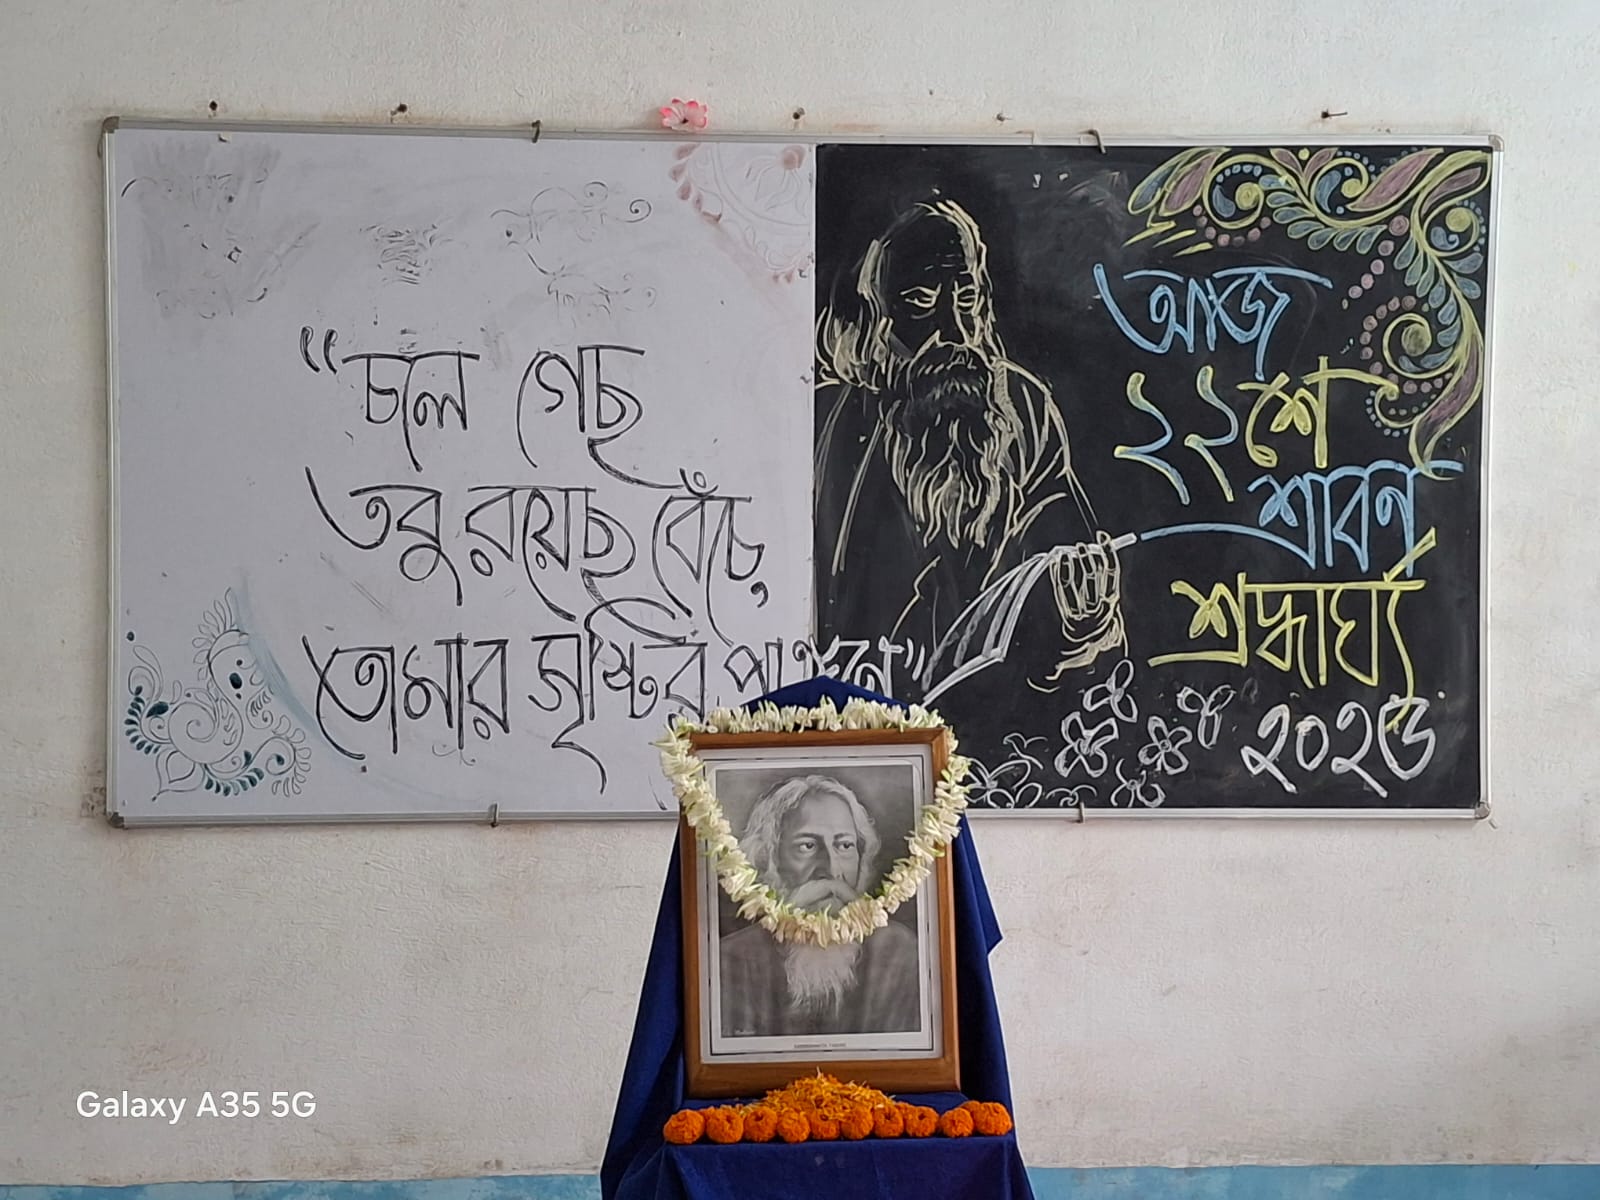 “চলে গেছ
তবু রয়েছ বেঁচে,
তোমার সৃষ্টির
আজ
২২শে
শ্রাবণ
শ্রদ্ধার্ঘ্য
২০২৬
RABINDRANATH TAGORE
Galaxy A35 5G